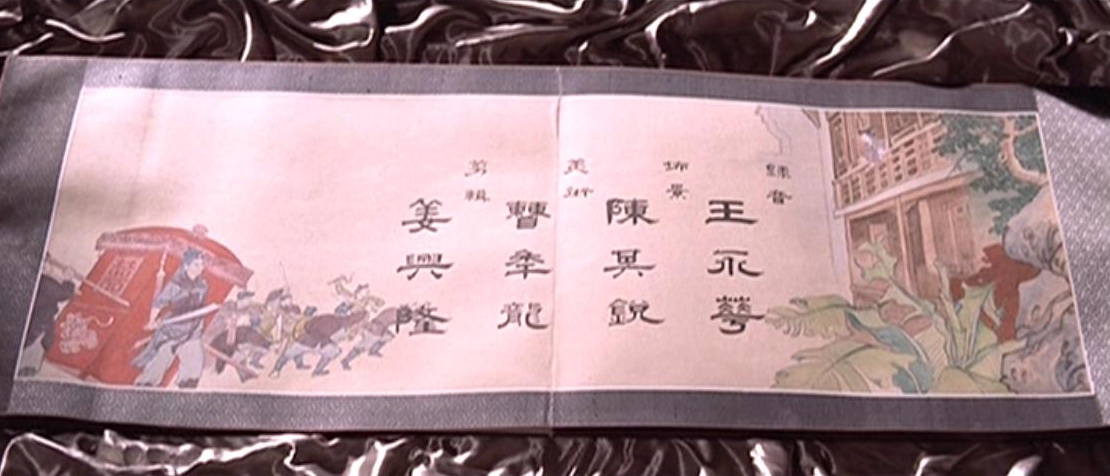 錄音
王永華
佈景
陳其銳
美術
曹年龍
剪輯
姜興隆